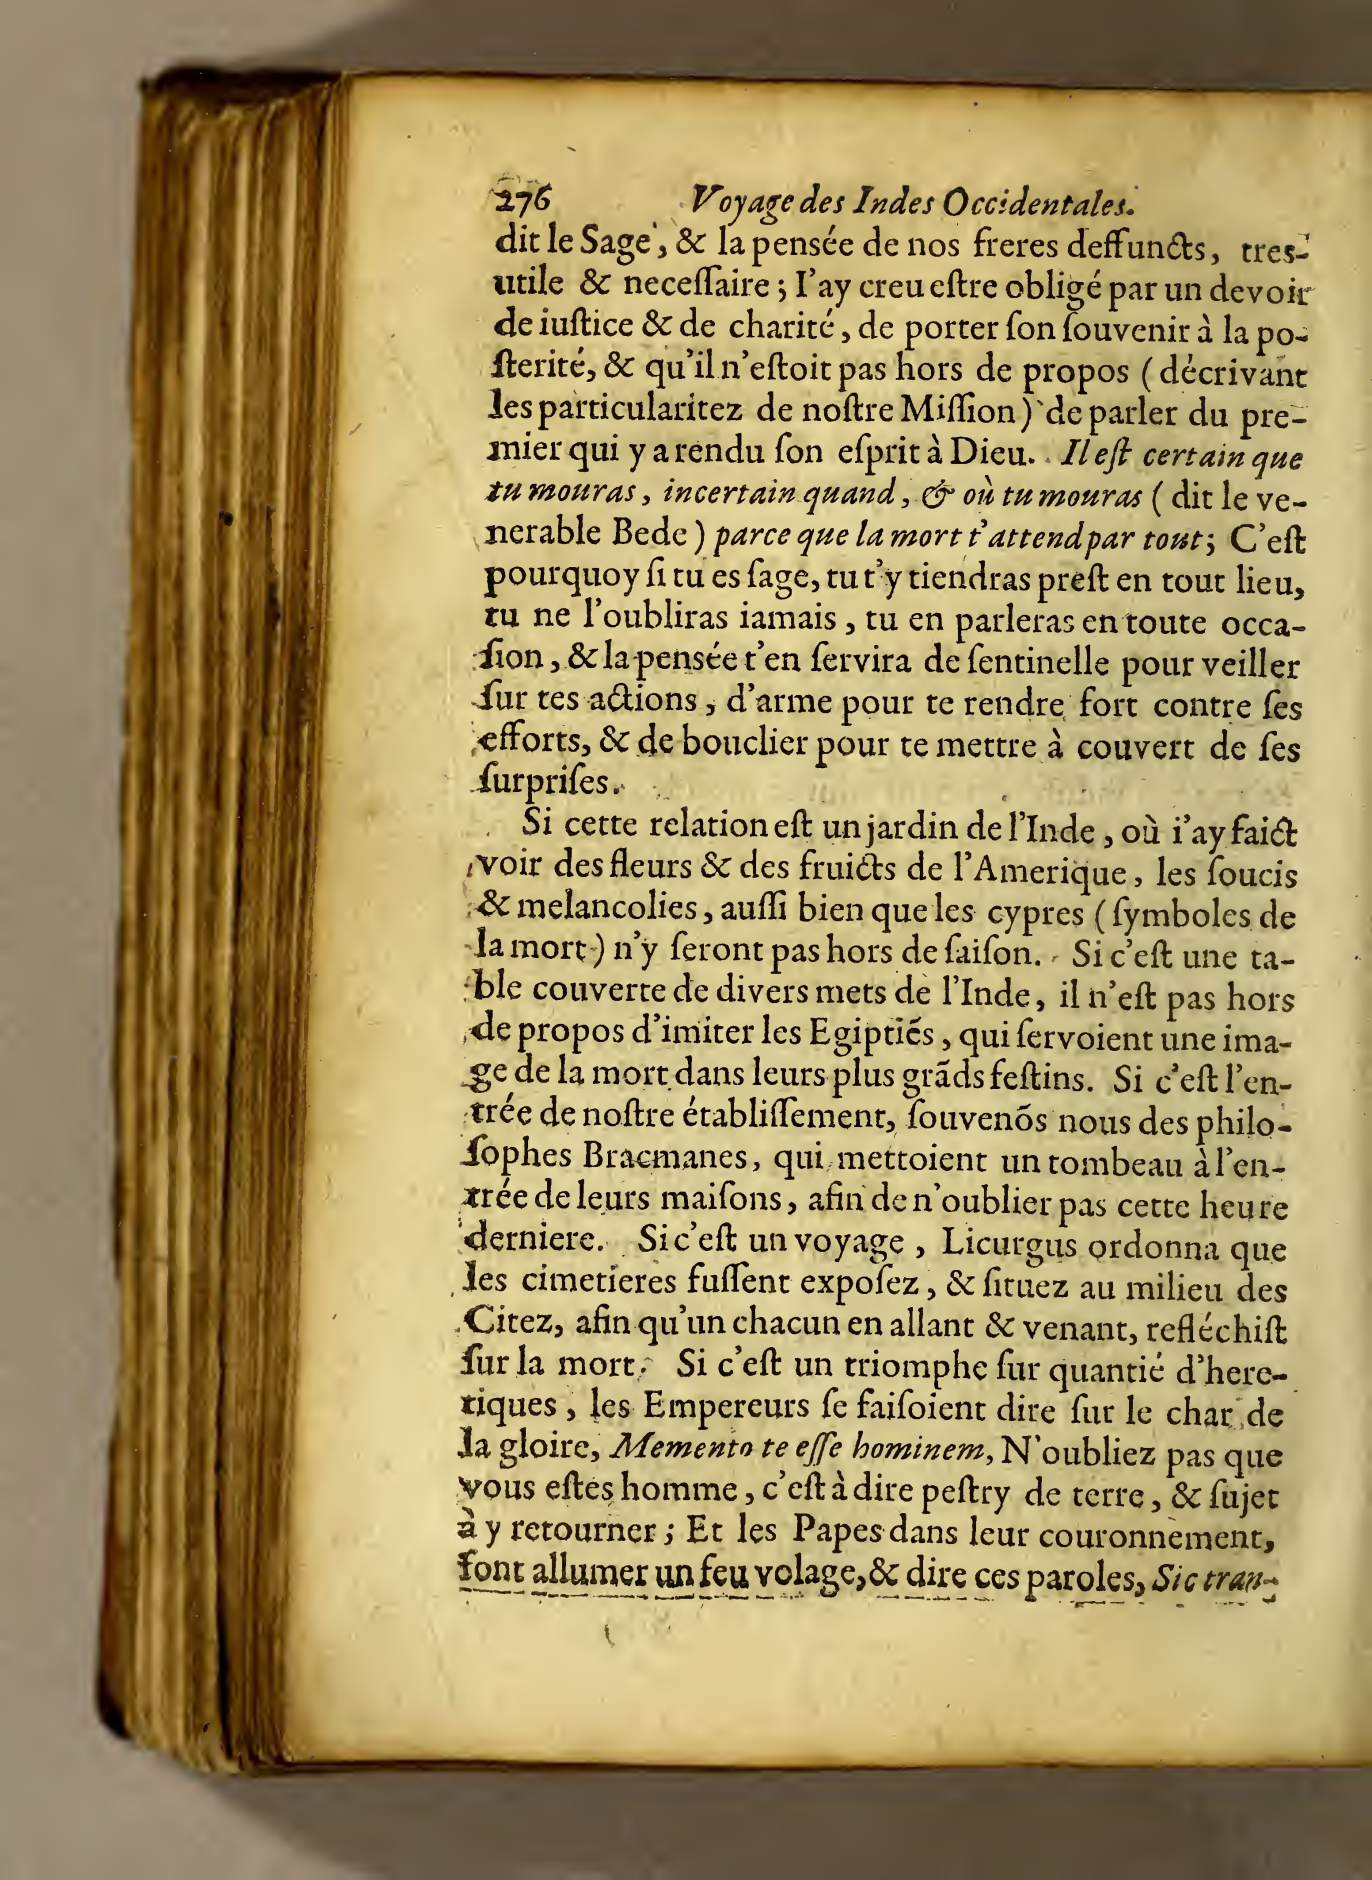 276 Voyage des Indes Occidentales.
dit le Sage, & la pensée de nos freres deffuncts, tres-
utile & neceſſaire; I'ay creu eſtre obligé par un devoir
de iuſtice & de charité, de porter ſon ſouvenir à la po-
ſterité, & qu'il n'eſtoit pas hors de propos (décrivant
les particularitez de noſtre Miſſion) de parler du pre-
mier qui y a rendu ſon eſprit à Dieu. Il eſt certain que
tu mouras, incertain quand, & où tu mouras (dit le ve-
nerable Bede) parce que la mort t'attend par tout; C'eſt
pourquoy ſi tu es ſage, tu t'y tiendras preſt en tout lieu,
tu ne l'oubliras iamais, tu en parleras en toute occa-
ſion, & la pensée t'en ſervira de ſentinelle pour veiller
ſur tes actions, d'arme pour te rendre fort contre ſes
efforts, & de bouclier pour te mettre à couvert de ſes
ſurpriſes.
Si cette relation eſt un jardin de l'Inde, où i'ay faict
voir des fleurs & des fruicts de l'Amerique, les ſoucis
& melancolies, auſſi bien que les cypres (ſymboles de
la mort) n'y ſeront pas hors de ſaiſon. Si c'eſt une ta-
ble couverte de divers mets de l'Inde, il n'eſt pas hors
de propos d'imiter les Egiptiẽs, qui ſervoient une ima-
ge de la mort dans leurs plus grãds feſtins. Si c'eſt l'en-
trée de noſtre établiſſement, ſouvenõs nous des philo-
ſophes Bracmanes, qui mettoient un tombeau à l'en-
trée de leurs maiſons, afin de n'oublier pas cette heure
derniere. Si c'eſt un voyage, Licurgus ordonna que
les cimetieres fuſſent expoſez, & ſituez au milieu des
Citez, afin qu'un chacun en allant & venant, refléchiſt
ſur la mort. Si c'eſt un triomphe ſur quantié d'here-
tiques, les Empereurs ſe faiſoient dire ſur le char de
la gloire, Memento te eſſe hominem, N'oubliez pas que
vous eſtes homme, c'eſt à dire peſtry de terre, & ſujet
à y retourner; Et les Papes dans leur couronnement,
font allumer un feu volage, & dire ces paroles, Sic tran-